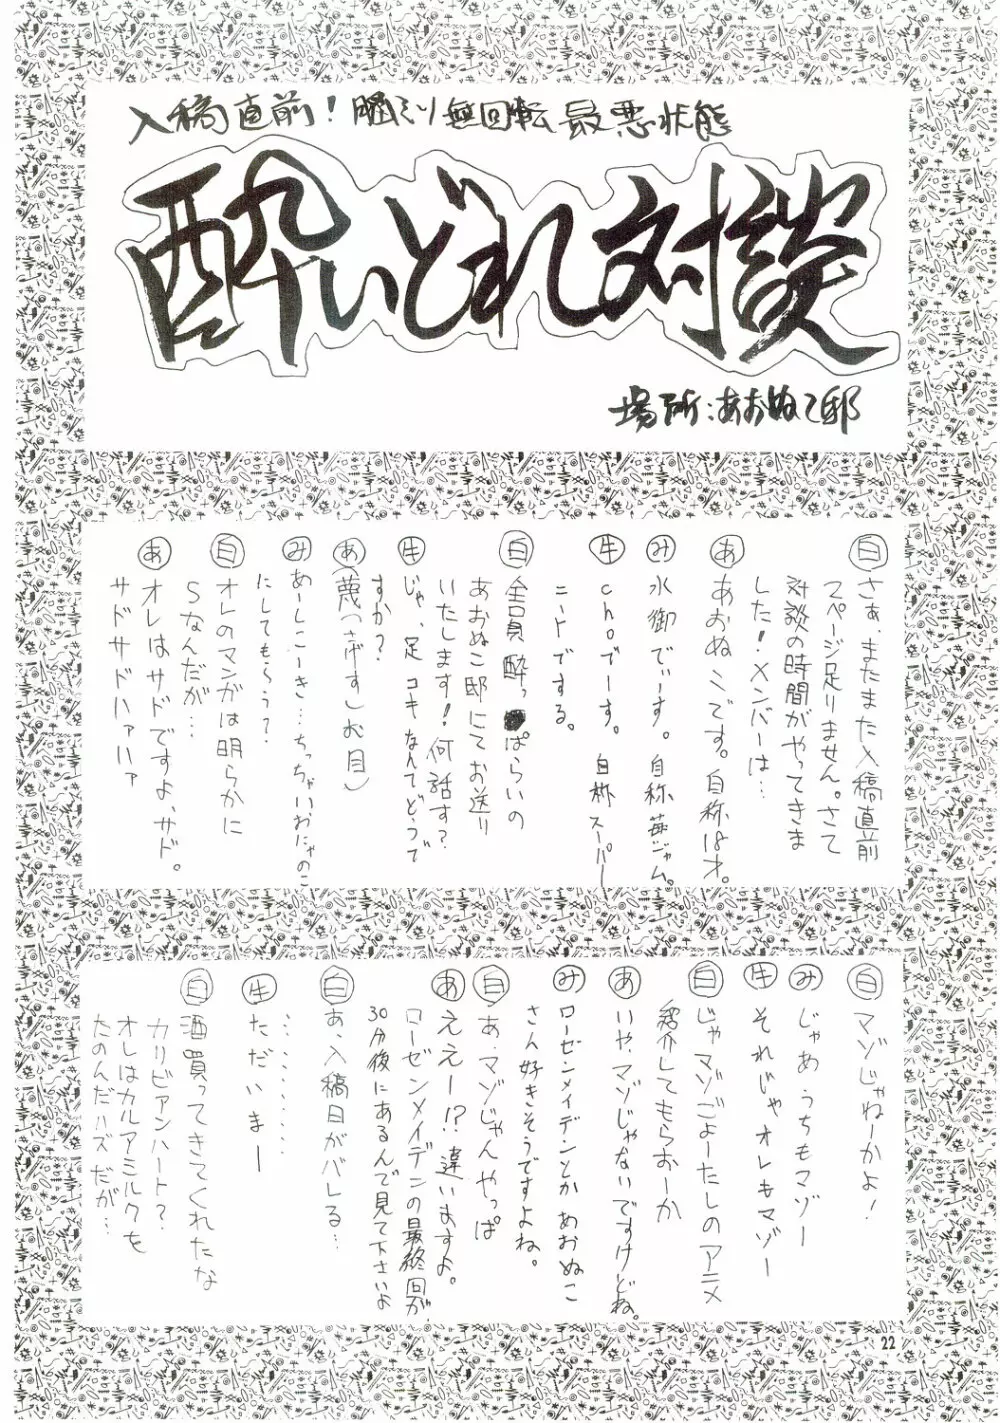 入稿直前！脳ミソ無回転最悪状態
酔いどれ対談
場所：あおぬこ邸
白 さぁ、またまた入稿直前
2ページ足りません。さて
対談の時間がやってきま
した！メンバーは…
あ あおぬこです。自称はオ。
み 水御でぃーす。自称苺ジャム。
牛 choでーす。自称スーパー
ニートでする。
白 全員酔っぱらいの
あおぬこ邸にてお送り
いたします！何話す？
牛 じゃ、足コキなんてどうで
すか？
あ （蔑（さげす）むお目）
み あーしこーき…ちっちゃいおにゃのこ
にしてもらう？
白 オレのマンガは明らかに
Sなんだが…
あ オレはサドですよ、サド。
サドサドハァハァ
白 マゾじゃねーかよ！
み じゃあうちもマゾー
牛 それじゃオレもマゾー
白 じゃマゾごよーたしのアニメ
紹介してもらおーか
あ いや、マゾじゃないですけどね。
み ローゼンメイデンとかあおぬこ
さん好きそうですよね。
白 あ、マゾじゃんやっぱ
あ ええー!?違いますよ。
ローゼンメイデンの最終回が
30分後にあるんで見て下さいよ
白 あ、入稿日がバレる…
…………
牛 ただいまー
白 酒買ってきてくれたな
カリビアンハート？
オレはカルアミルクを
たのんだハズだが…
22